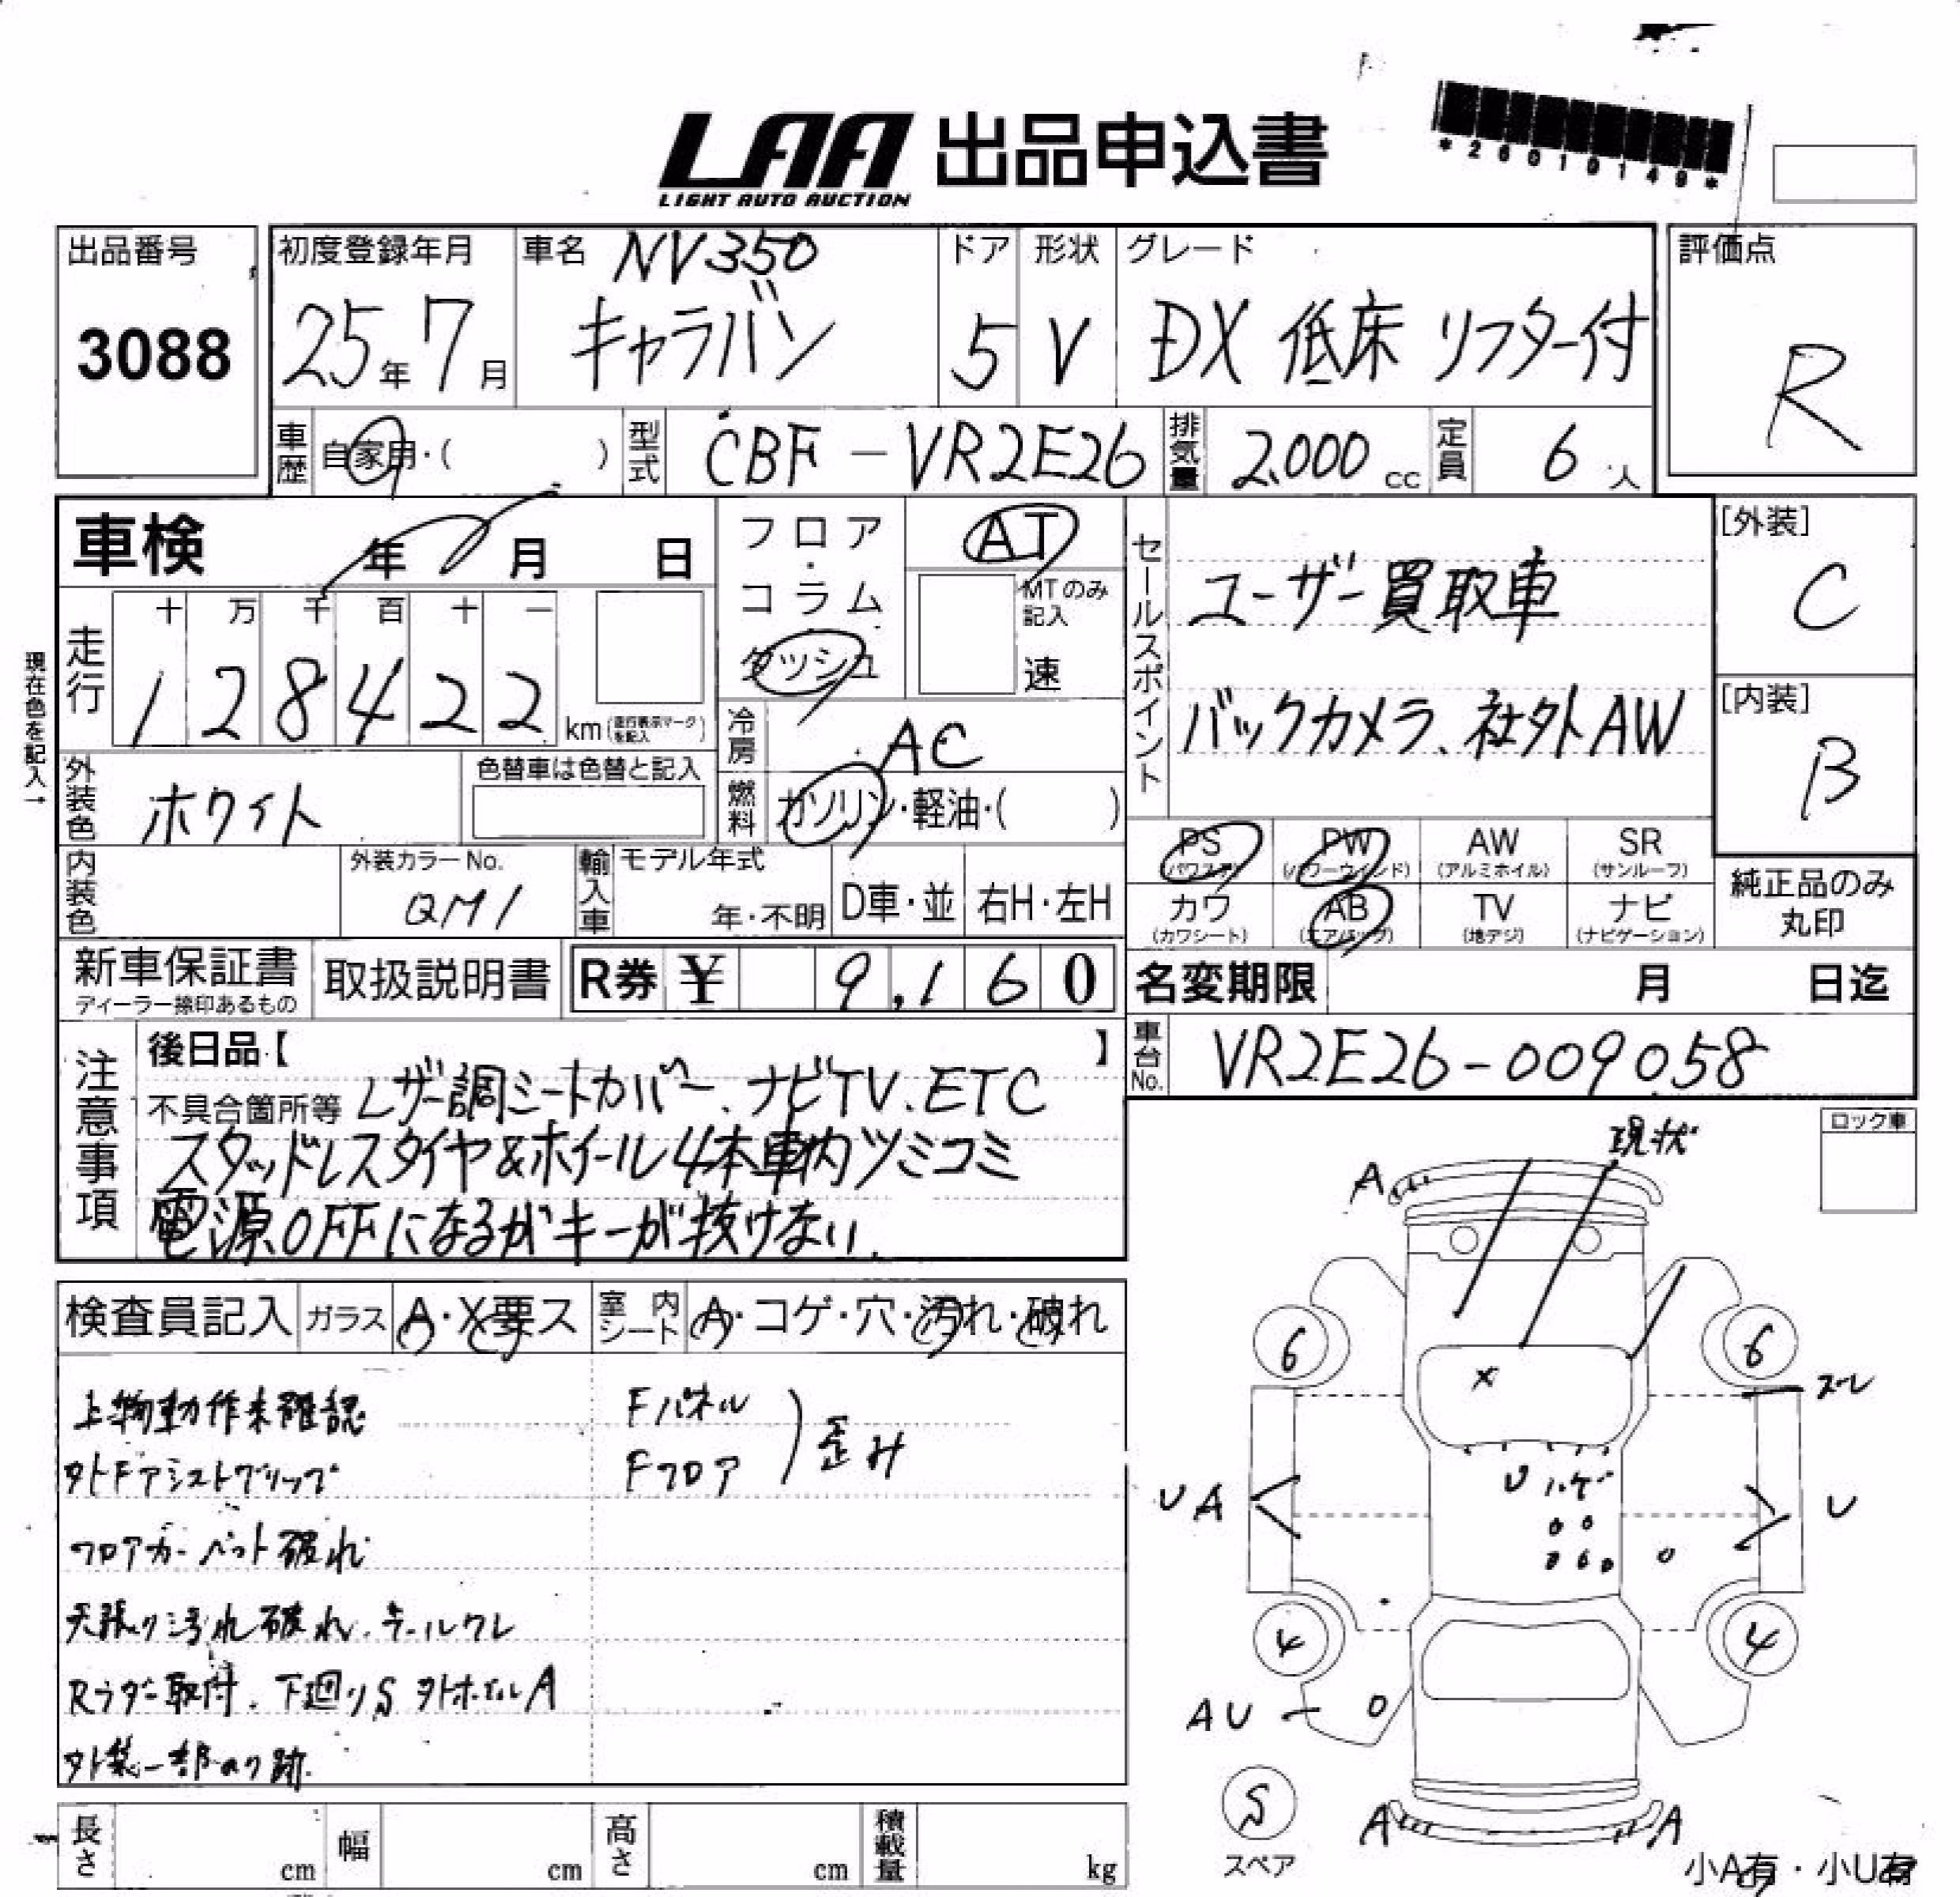 LAA 出品申込書
LIGHT AUTO AUCTION
*26010149*
出品番号
3088
初度登録年月
25年7月
車名 NV350
キャラバン
ドア
5
形状
V
グレード
DX 低床 リフター付
評価点
R
車歴 自家用・( )
型式 CBF-VR2E26
排気量 2,000 cc
定員 6 人
車検 年 月 日
走行
十 万 千 百 十 一
1 2 8 4 2 2 km (走行表示マークを記入)
現在色を記入→
フロア・コラム
ダッシュ
AT
MTのみ記入
速
冷房 AC
燃料 ガソリン・軽油・( )
外装色 ホワイト
色替車は色替と記入
内装色
外装カラーNo.
QM1
輸入車 モデル年式
年・不明
D車・並
右H・左H
セールスポイント
ユーザー買取車
バックカメラ、社外AW
[外装]
C
[内装]
B
PS (パワステ)
PW (パワーウィンド)
AW (アルミホイル)
SR (サンルーフ)
カワ (カワシート)
AB (エアバッグ)
TV (地デジ)
ナビ (ナビゲーション)
純正品のみ
丸印
新車保証書
ディーラー捺印あるもの
取扱説明書
R券 ¥ 9,160
名変期限 月 日迄
車台No. VR2E26-009058
注意事項
後日品【 】
不具合箇所等 レザー調シートカバー、ナビTV、ETC
スタッドレスタイヤ&ホイール4本車内ツミコミ
電源OFFになるがキーが抜けない、
ロック車
検査員記入
ガラス A・X要ス
室内シート A・コゲ・穴・汚れ・破れ
上物動作未確認
外Fアシストグリップ
フロアカーペット破れ
天張り汚れ破れ、テールワレ
Rラダー取付、下廻りS 外ホイルA
外装一部のり跡
Fパネル
Fフロア
歪み
現状
A
6
6
X
スレ
U ハゲ
UA
U
4
4
AU
S
スペア
A
A
小A有・小U有
長さ cm
幅 cm
高さ cm
積載量 kg